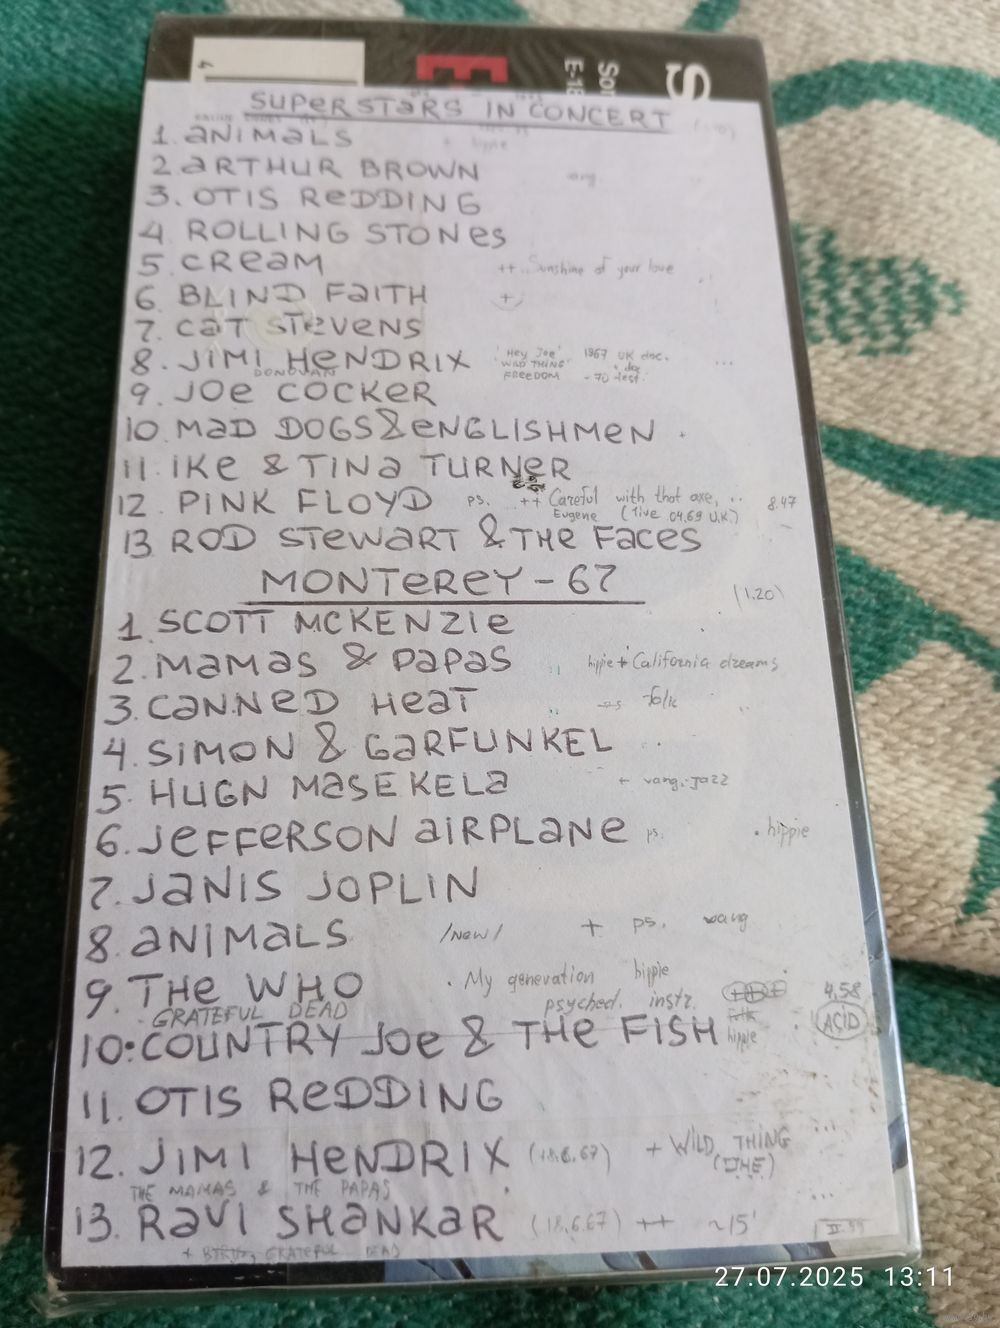 S
Son
E-18
E
4
SUPERSTARS IN CONCERT
1. ANIMALS hippie
2. ARTHUR BROWN ang.
3. OTIS REDDING
4. ROLLING STONES
5. CREAM ++ .. Sunshine of your love
6. BLIND FAITH +
7. CAT STEVENS
8. JIMI HENDRIX 'Hey Joe' 1967 UK doc. ...
WILD THING doc
FREEDOM - 70 fest.
DONOVAN
9. JOE COCKER
10. MAD DOGS & ENGLISHMEN
11. IKE & TINA TURNER
12. PINK FLOYD ps. ++ Careful with that axe, .. 8.47
Eugene (live 04.69 U.K.)
13 ROD STEWART & THE FACES
MONTEREY - 67 (1.20)
1. SCOTT MCKENZIE
2. MAMAS & PAPAS hippie + California dreams
3. CANNED HEAT folk
4. SIMON & GARFUNKEL
5. HUGN MASEKELA + vang. jazz
6. JEFFERSON AIRPLANE ps. . hippie
7. JANIS JOPLIN
8. ANIMALS /New/ + ps. vang
9. THE WHO . My generation hippie
psyched. instr. 4.58
GRATEFUL DEAD folk ACID
10. COUNTRY JOE & THE FISH hippie
11. OTIS REDDING
12. JIMI HENDRIX (18.6.67) + WILD THING
(THE)
THE MAMAS & THE PAPAS
13. RAVI SHANKAR (18.6.67) ++ ~15'
GRATEFUL DEAD
27.07.2025 13:11